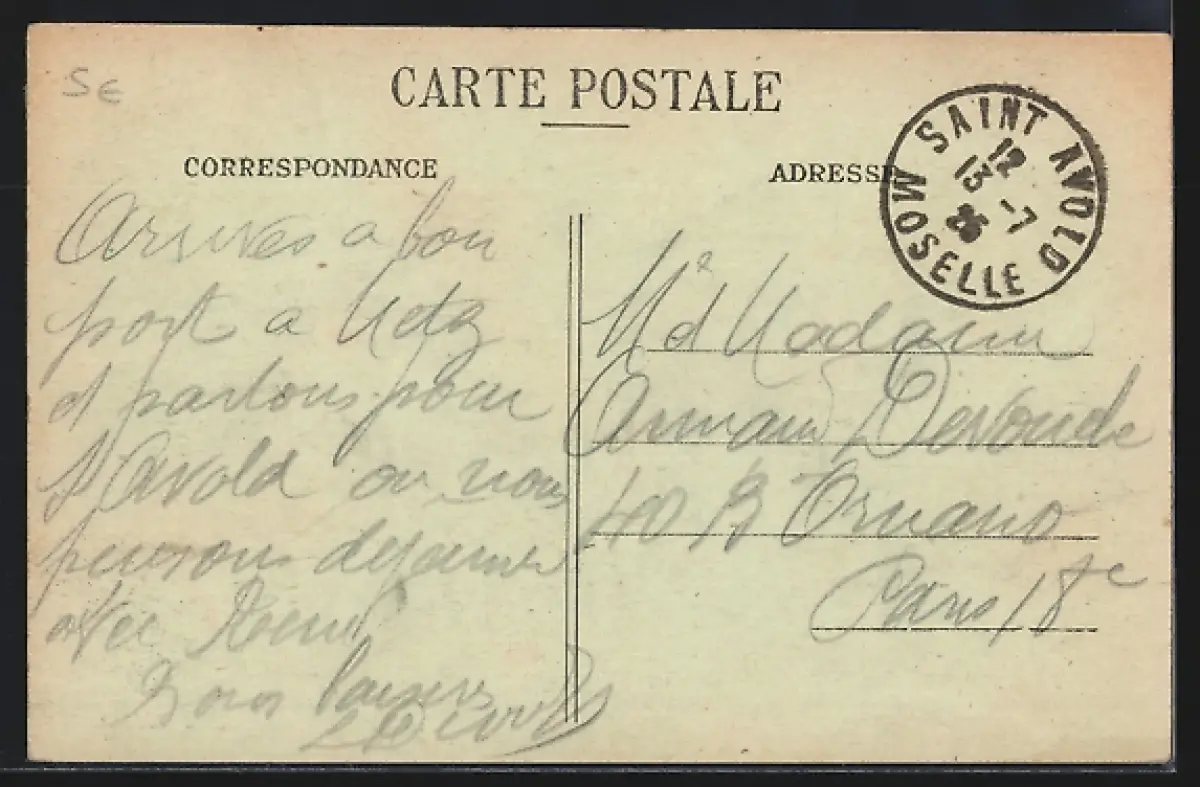 5€
CARTE POSTALE
CORRESPONDANCE
ADRESSE
SAINT AVOLD
MOSELLE
12
13 -7
25
Arrives a bon
port a Metz
et partons pour
St Avold ou nous
pensons dejeuner
avec
Bons baisers
Md Madame
Armand
40 Bd Ornano
Paris 18e